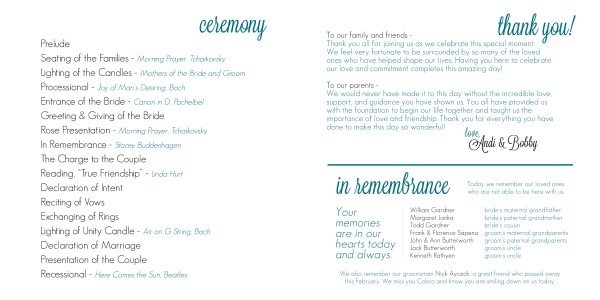 ceremony
Prelude
Seating of the Families - Morning Prayer, Tchaikovsky
Lighting of the Candles - Mothers of the Bride and Groom
Processional - Joy of Man's Desiring, Bach
Entrance of the Bride - Canon in D, Pachelbel
Greeting & Giving of the Bride
Rose Presentation - Morning Prayer, Tchaikovsky
In Remembrance - Stacey Buddenhagen
The Charge to the Couple
Reading, "True Friendship" - Linda Hurt
Declaration of Intent
Reciting of Vows
Exchanging of Rings
Lighting of Unity Candle - Air on G String, Bach
Declaration of Marriage
Presentation of the Couple
Recessional - Here Comes the Sun, Beatles
thank you!
To our family and friends -
Thank you all for joining us as we celebrate this special moment.
We feel very fortunate to be surrounded by so many of the loved
ones who have helped shape our lives. Having you here to celebrate
our love and commitment completes this amazing day!
To our parents -
We would never have made it to this day without the incredible love,
support, and guidance you have shown us. You all have provided us
with the foundation to begin our life together and taught us the
importance of love and friendship. Thank you for everything you have
done to make this day so wonderful!
love,
Andi & Bobby
in remembrance
Today we remember our loved ones
who are not able to be here with us.
Your
memories
are in our
hearts today
and always.
William Gardner bride's maternal grandfather
Margaret Janka bride's paternal grandmother
Todd Gardner bride's cousin
Frank & Florence Sapena groom's maternal grandparents
John & Ann Butterworth groom's paternal grandparents
Jack Butterworth groom's uncle
Kenneth Rathyen groom's uncle
We also remember our groomsman Nick Aycock, a great friend who passed away
this February. We miss you Cabro and know you are smiling down on us today.